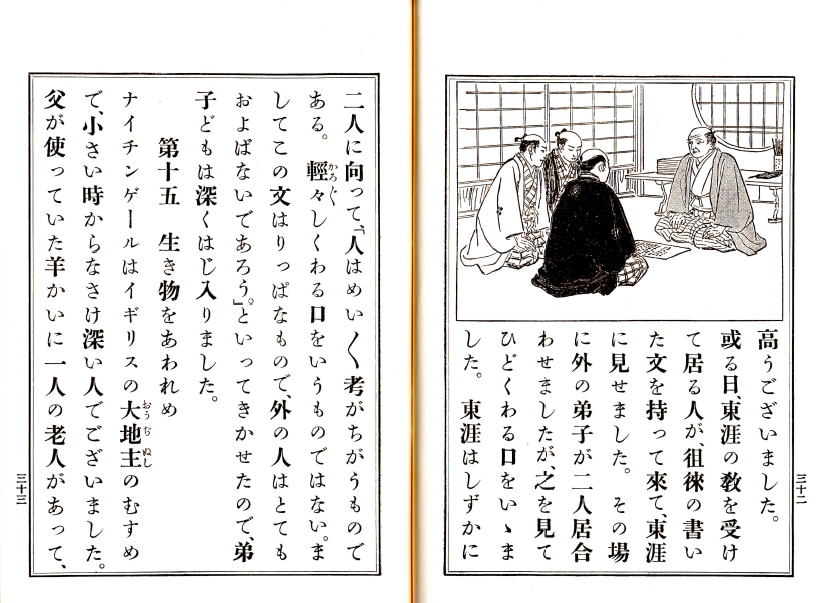 高うございました。
或る日、東涯の教を受け
て居る人が、徂徠の書い
た文を持って來て、東涯
に見せました。その場
に外の弟子が二人居合
わせましたが、之を見て
ひどくわる口をいゝま
した。東涯はしずかに
三十二
二人に向って、「人はめい〱考がちがうもので
ある。輕々しくわる口をいうものではない。ま
してこの文はりっぱなもので、外の人はとても
およばないであろう。」といってきかせたので、弟
子どもは深くはじ入りました。
第十五 生き物をあわれめ
ナイチンゲールはイギリスの大地主のむすめ
で、小さい時からなさけ深い人でございました。
父が使っていた羊かいに一人の老人があって、
三十三
かろ〲
おうぢぬし